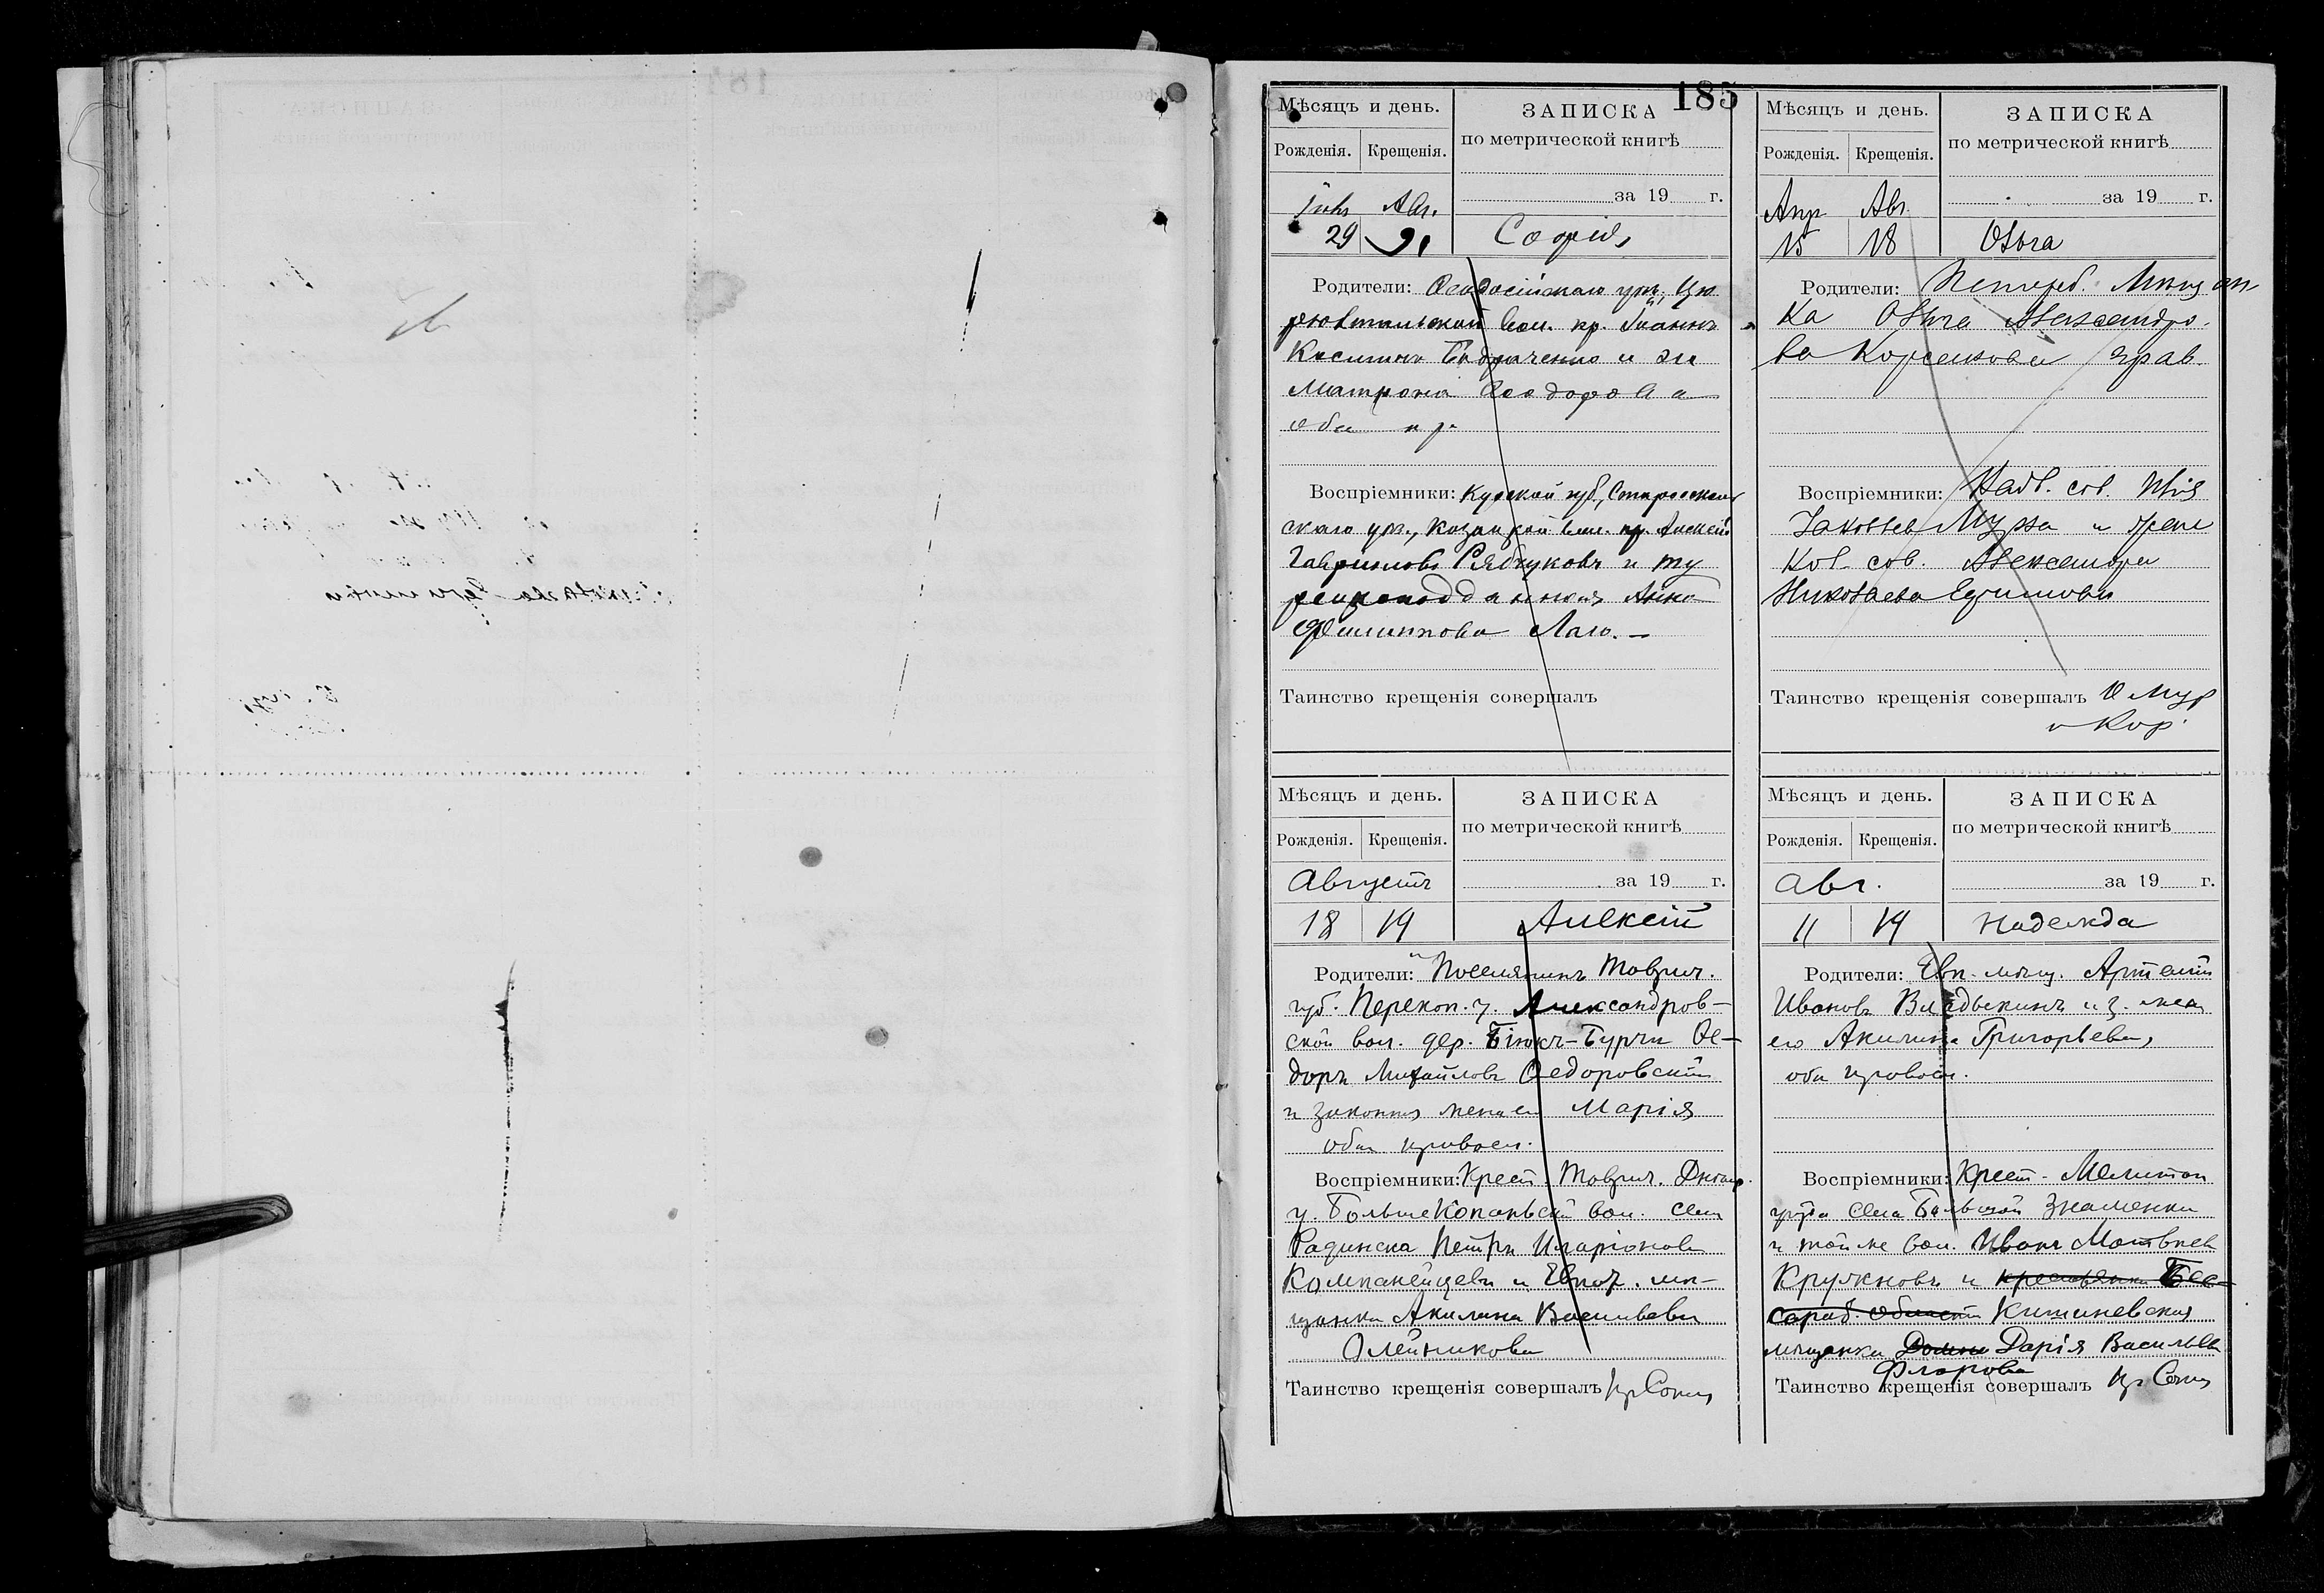 185
Мѣсяцъ и день.
ЗАПИСКА
по метрической книгѣ
Рожденія. Крещенія.
за 19 г.
Авг.
29
Софія
Родители: Ѳеодосійскаго уѣз., Цю
рюхтальской вол. кр. Іоаннъ
Косминъ Бодраченко и зж
Матрона Ѳеодорова
оба пр.
Воспріемники: Курской губ., Старооскол
скаго уѣз., Козацкой вол. кр. Алексѣй
Гавриловъ Рябчуковъ и ту
рецкоподданная Анна
Филиппова Лаго. —
Таинство крещенія совершалъ
Мѣсяцъ и день.
ЗАПИСКА
по метрической книгѣ
Рожденія. Крещенія.
за 19 г.
Апр Авг.
15 18 Ольга
Родители: Петерб. Мѣщан
ка Ольга Александро-
ва Корсакова прав.
Воспріемники: Надв. сов. Илія
Яковлев Мурза и
сов. Александра
Николаева Ефимова
Таинство крещенія совершалъ О Мур
и Кор.
Мѣсяцъ и день.
ЗАПИСКА
по метрической книгѣ
Рожденія. Крещенія.
за 19 г.
Августъ
18 19 Алексѣй
Родители: Поселянинъ Таврич.
губ. Перекоп. у. Александров-
ской вол. дер. Біюкъ-Бурчи Ѳе-
доръ Михайловъ Ѳедоровскій
и законная жена его Марія
оба правосл.
Воспріемники: Крест. Таврич. Днѣпр.
у. БольшеКопаньской вол. села
Раденска Петръ Иларіоновъ
Компанейцевъ и Евпат. мѣ-
щанка Акилина Васильева
Олейникова
Таинство крещенія совершалъ пр Сокол
Мѣсяцъ и день.
ЗАПИСКА
по метрической книгѣ
Рожденія. Крещенія.
за 19 г.
Авг.
11 19 Надежда
Родители: Евп. мѣщ. Артемій
Ивановъ Владыкинъ и з. жена
его Акилина Григорьева,
оба правосл.
Воспріемники: Крест. Мелитоп
уѣзда села Большой Знаменки
и той же вол. Иванъ Матвѣев
Кружновъ и крестьянка Бес-
сараб. области Кишиневская
мѣщанка Дарія Васильева
Фларова
Таинство крещенія совершалъ пр Сокол